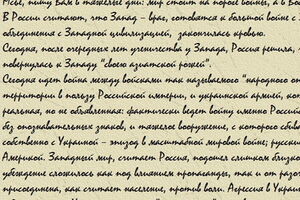 Меье, пишу Вам в тяжелые дни: мир стоит на пороге войны, а в Во
В России считают, что Запад - враг, готовятся к большой войне с
объединения с Западной цивилизацией, закончилась кровью.
Сегодня, после очередных лет ученичества у Запада, Россия решила,
повернулась к Западу "своею азиатской рожей".
Сегодня идет война между войсками так называемого "народного оп
территории в пользу Российской империи, и украинской армией, кот
реальная, но не объявленная: фактически ведет войну именно Россий
без опознавательных знаков, и тяжелое вооружение, с которого сбива
собственно с Украиной - эпизод в масштабной мировой войне; русски
Америкой. Западный мир, считает Россия, подошел слишком близко
убеждение сложилось как под влиянием пропаганды, так и от разоч
присоединена, как считает население, против воли. Агрессия в Украин